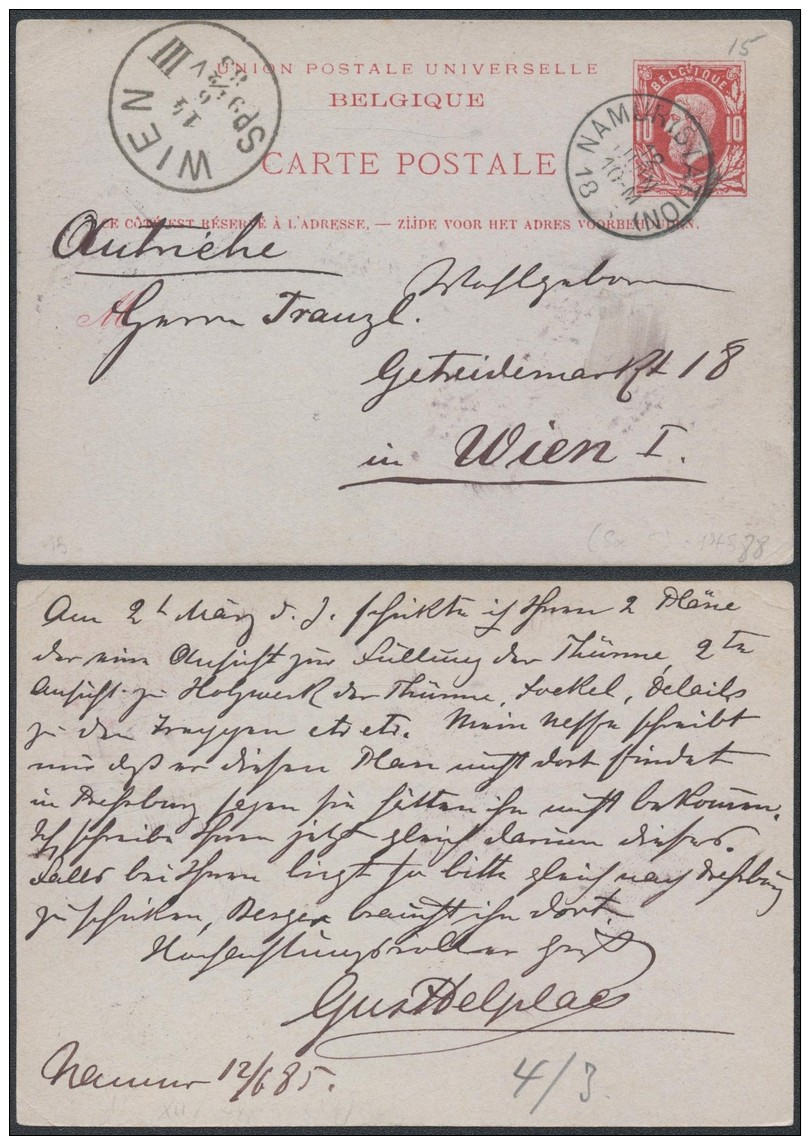 15
UNION POSTALE UNIVERSELLE
BELGIQUE
CARTE POSTALE
CE CÔTÉ EST RÉSERVÉ À L'ADRESSE, — ZIJDE VOOR HET ADRES VOORBEHOUDEN.
BELGIQUE
10 10
WIEN
III
14 6
NAMUR (STATION)
10-M
18
Autriche
Wohlgeboren
M
Herrn Franzl.
Getreidemarkt 18
in Wien I.
88
Am 2t März d. J. schikte ich Ihnen 2 Pläne
der eine Ansicht zur Füllung der Thürme, 2te
Ansicht zu Holzwerk der Thürme, Sockel, Details
zu den Treppen etc etc. Mein Neffe schreibt
mir daß er diesen Plan nicht dort findet
in Preßburg sagen sie hätten ihn nicht bekommen.
Ich schreibe Ihnen jetzt gleich darum dieses.
Falls bei Ihnen liegt so bitte gleich nach Preßburg
zu schiken, Berger braucht ihn dort.
Hochachtungsvoller
Gust Delplace
Namur 12/6 85.
4/3.